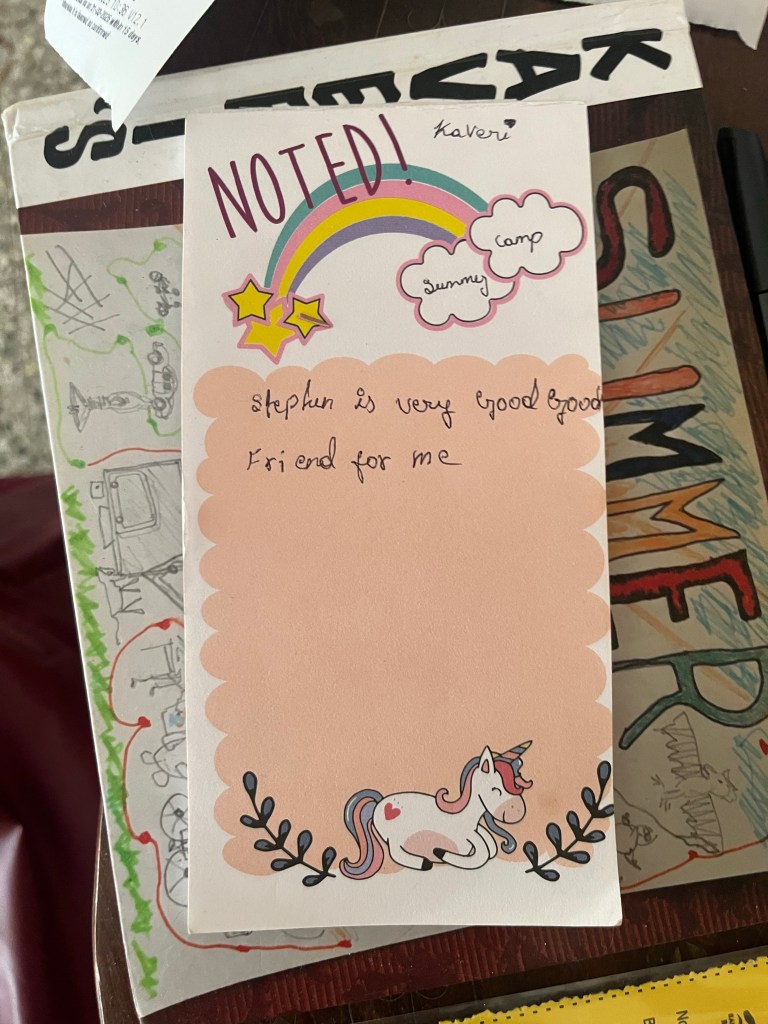 KAVERI'S
NOTED!
Kaveri
Summer
Camp
Stephen is very Good Good
Friend for me
SUMMER